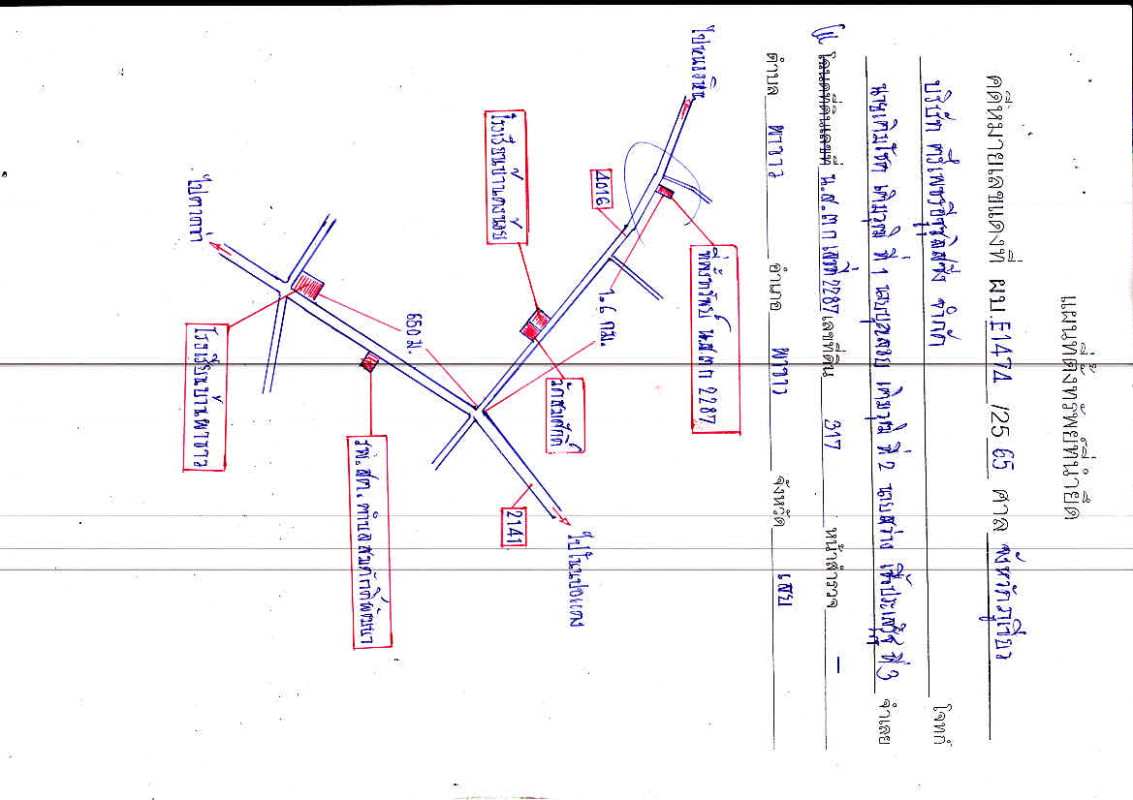 แผนที่ตั้งทรัพย์ที่นำยึด
คดีหมายเลขแดงที่ ผบ.E1474 /25 65 ศาล จังหวัดภูเขียว
บริษัท ตรีเพชรอีซูซุลิสซิ่ง จำกัด โจทก์
นายเติมโชค เติมวุฒิ ที่ 1 นายบุญลอย เติมวุฒิ ที่ 2 นายสว่าง ที่ 3 จำเลย
โฉนดที่ดินเลขที่ น.ส.3 ก เลขที่ 2287 เลขที่ดิน 317 หน้าสำรวจ -
ตำบล ผาขาว อำเภอ ผาขาว จังหวัด เลย
ไปหนองหิน
4016
ที่ตั้งทรัพย์ น.ส.3 ก 2287
โรงเรียนบ้านดงน้อย
1.6 กม.
วัดสมศักดิ์
650 ม.
2141
ไปโนนปอแดง
ไปตาดข่า
โรงเรียนบ้านผาขาว
รพ.สต.ตำบลสมศักดิ์พัฒนา